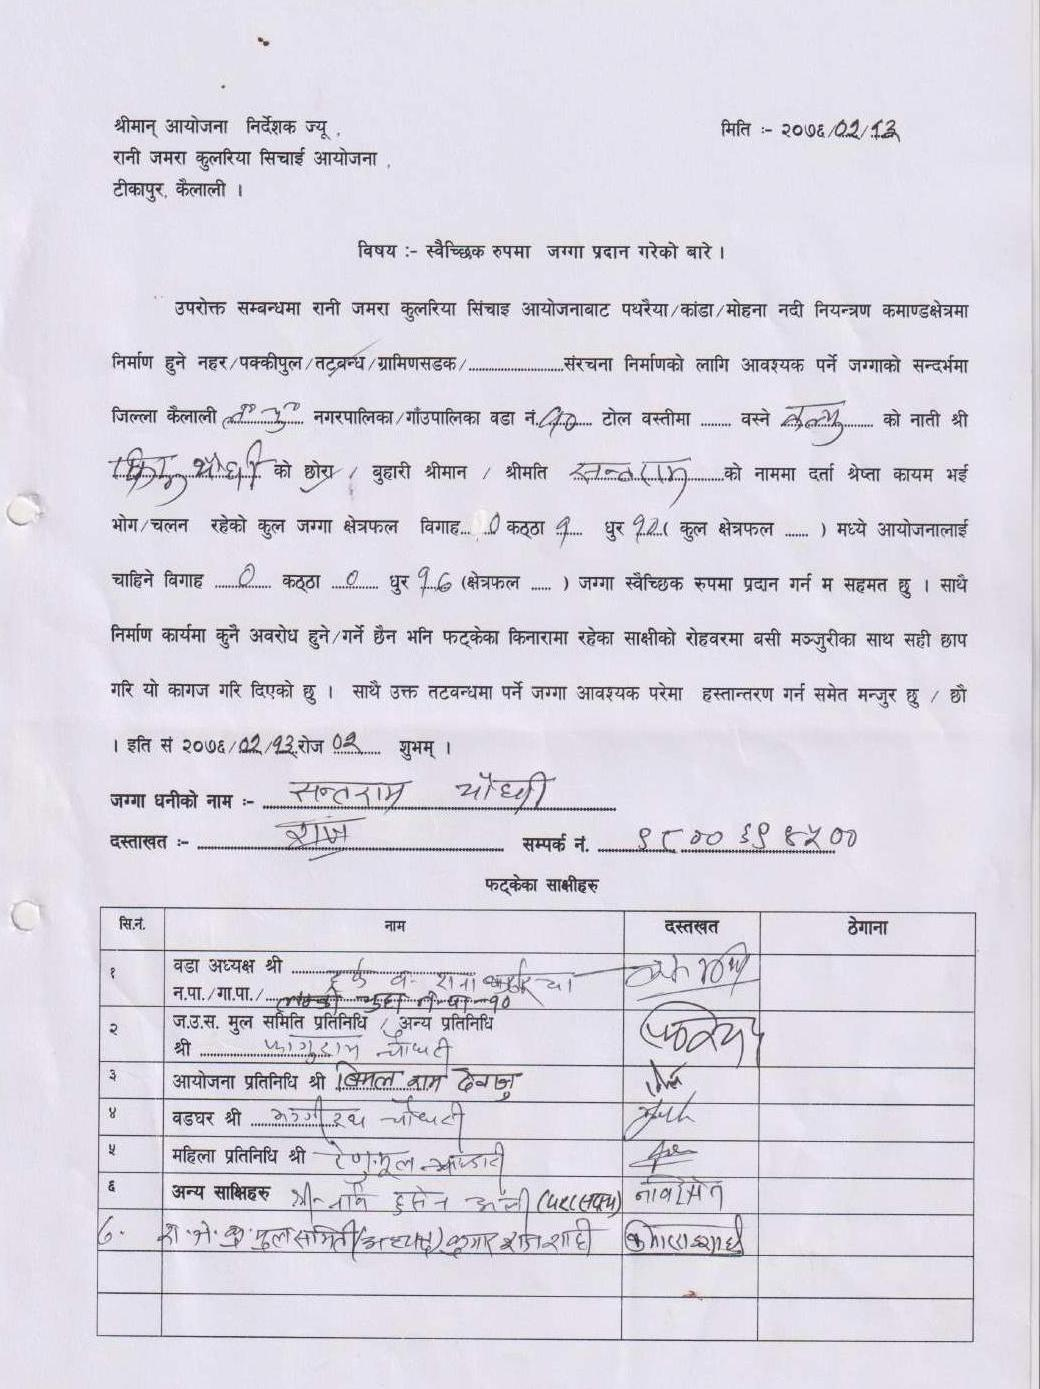 श्रीमान् आयोजना निर्देशक ज्यू ,
मिति :- २०७६/02/13
रानी जमरा कुलरिया सिचाई आयोजना ,
टीकापुर, कैलाली ।
विषय :- स्वैच्छिक रुपमा जग्गा प्रदान गरेको बारे ।
उपरोक्त सम्बन्धमा रानी जमरा कुलरिया सिंचाइ आयोजनाबाट पथरैया/कांडा/मोहना नदी नियन्त्रण कमाण्डक्षेत्रमा
निर्माण हुने नहर/पक्कीपुल/तटबन्ध/ग्रामिणसडक/..........................संरचना निर्माणको लागि आवश्यक पर्ने जग्गाको सन्दर्भमा
जिल्ला कैलाली ल० चु० नगरपालिका/गाँउपालिका वडा नं.१०.... टोल वस्तीमा ........ वस्ने को नाती श्री
चौधरी को छोरा / बुहारी श्रीमान / श्रीमति सन्तराम को नाममा दर्ता श्रेष्ता कायम भई
भोग/चलन रहेको कुल जग्गा क्षेत्रफल विगाह... 0 कठ्ठा १ धुर १२ ( कुल क्षेत्रफल ...... ) मध्ये आयोजनालाई
चाहिने विगाह 0 कठ्ठा 0 धुर १६ (क्षेत्रफल ..... ) जग्गा स्वैच्छिक रुपमा प्रदान गर्न म सहमत छु । साथै
निर्माण कार्यमा कुनै अवरोध हुने/गर्ने छैन भनि फट्केका किनारामा रहेका साक्षीको रोहवरमा बसी मञ्जुरीका साथ सही छाप
गरि यो कागज गरि दिएको छु । साथै उक्त तटवन्धमा पर्ने जग्गा आवश्यक परेमा हस्तान्तरण गर्न समेत मन्जुर छु / छौ
। इति सं २०७६/02/१३ रोज 02 शुभम् ।
जग्गा धनीको नाम :- सन्तराम चौधरी
दस्ताखत :- सम्पर्क नं. ९८००६९४५००
फट्केका साक्षीहरु
सि.नं. नाम दस्तखत ठेगाना
१ वडा अध्यक्ष श्री
न.पा./गा.पा./ लम्की चुहा न.पा. १०
२ ज.उ.स. मुल समिति प्रतिनिधि / अन्य प्रतिनिधि
श्री फागुराम चौधरी
३ आयोजना प्रतिनिधि श्री बिमल राम देवजु
४ वडघर श्री भगीरथ चौधरी
५ महिला प्रतिनिधि श्री
६ अन्य साक्षिहरु
७. रा.ज.कु. मुल समिती (अध्यक्ष) कुमार राज शाही